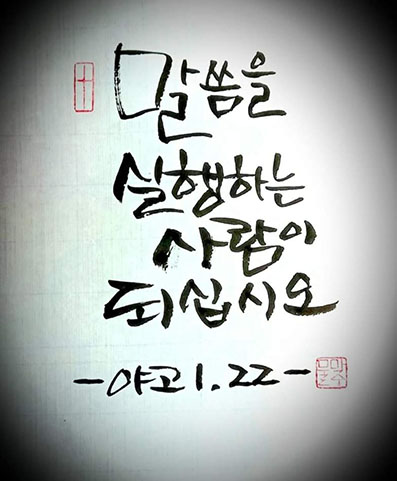 말씀을
실행하는
사람이
되십시오
-야고 1.22-